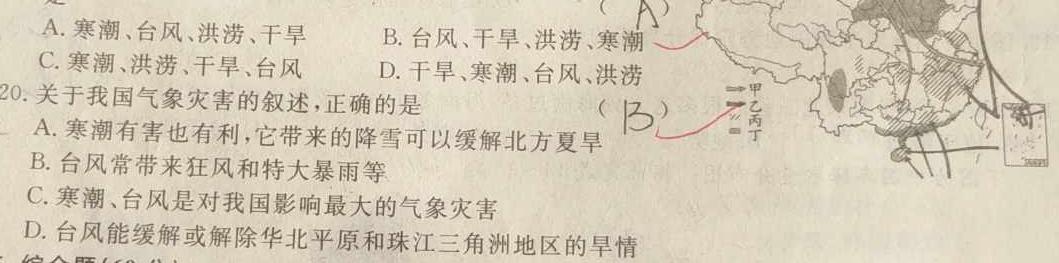 (A)
A. 寒潮、台风、洪涝、干旱 B. 台风、干旱、洪涝、寒潮
C. 寒潮、洪涝、干旱、台风 D. 干旱、寒潮、台风、洪涝
20. 关于我国气象灾害的叙述,正确的是 (B)
A. 寒潮有害也有利,它带来的降雪可以缓解北方夏旱
B. 台风常带来狂风和特大暴雨等
C. 寒潮、台风是对我国影响最大的气象灾害
D. 台风能缓解或解除华北平原和珠江三角洲地区的旱情
甲
乙
丙
丁